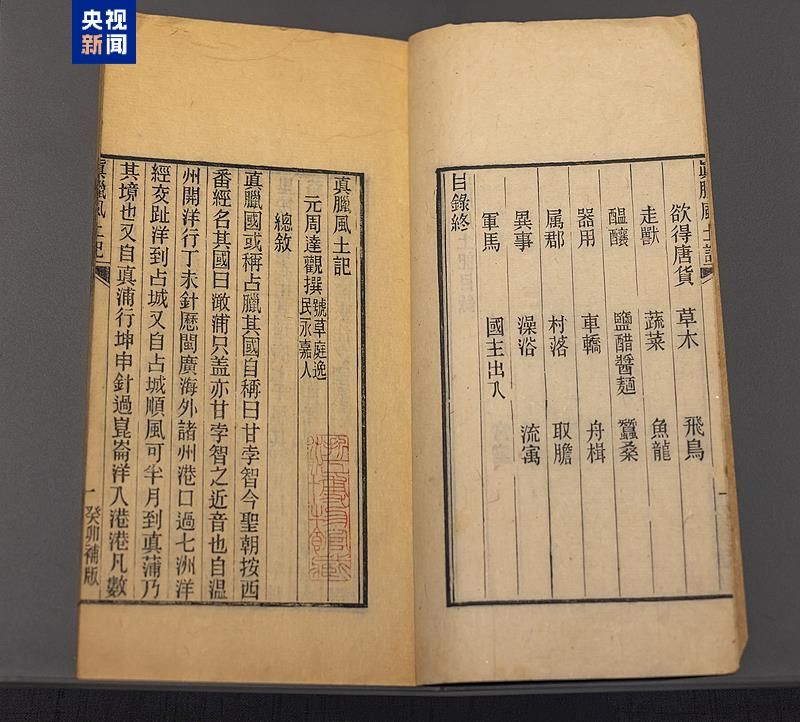 央视
新闻
真臘風土記
一
欲得唐貨 草木 飛鳥
走獸 蔬菜 魚龍
醖釀 鹽醋醬麵 蠶桑
器用 車轎 舟楫
属郡 村落 取膽
異事 澡浴 流寓
軍馬 國主出入
目錄終
真臘風土記
元周達觀撰 號草庭逸
民永嘉人
總敘
眞臘國或稱占臘其國自稱曰甘孛智今聖朝按西
番經名其國曰澉浦只蓋亦甘孛智之近音也自溫
州開洋行丁未針歷閩廣海外諸州港口過七洲洋
經交趾洋到占城又自占城順風可半月到眞蒲乃
其境也又自眞蒲行坤申針過崑崙洋入港港凡數
眞臘風土記
一 癸卯補版